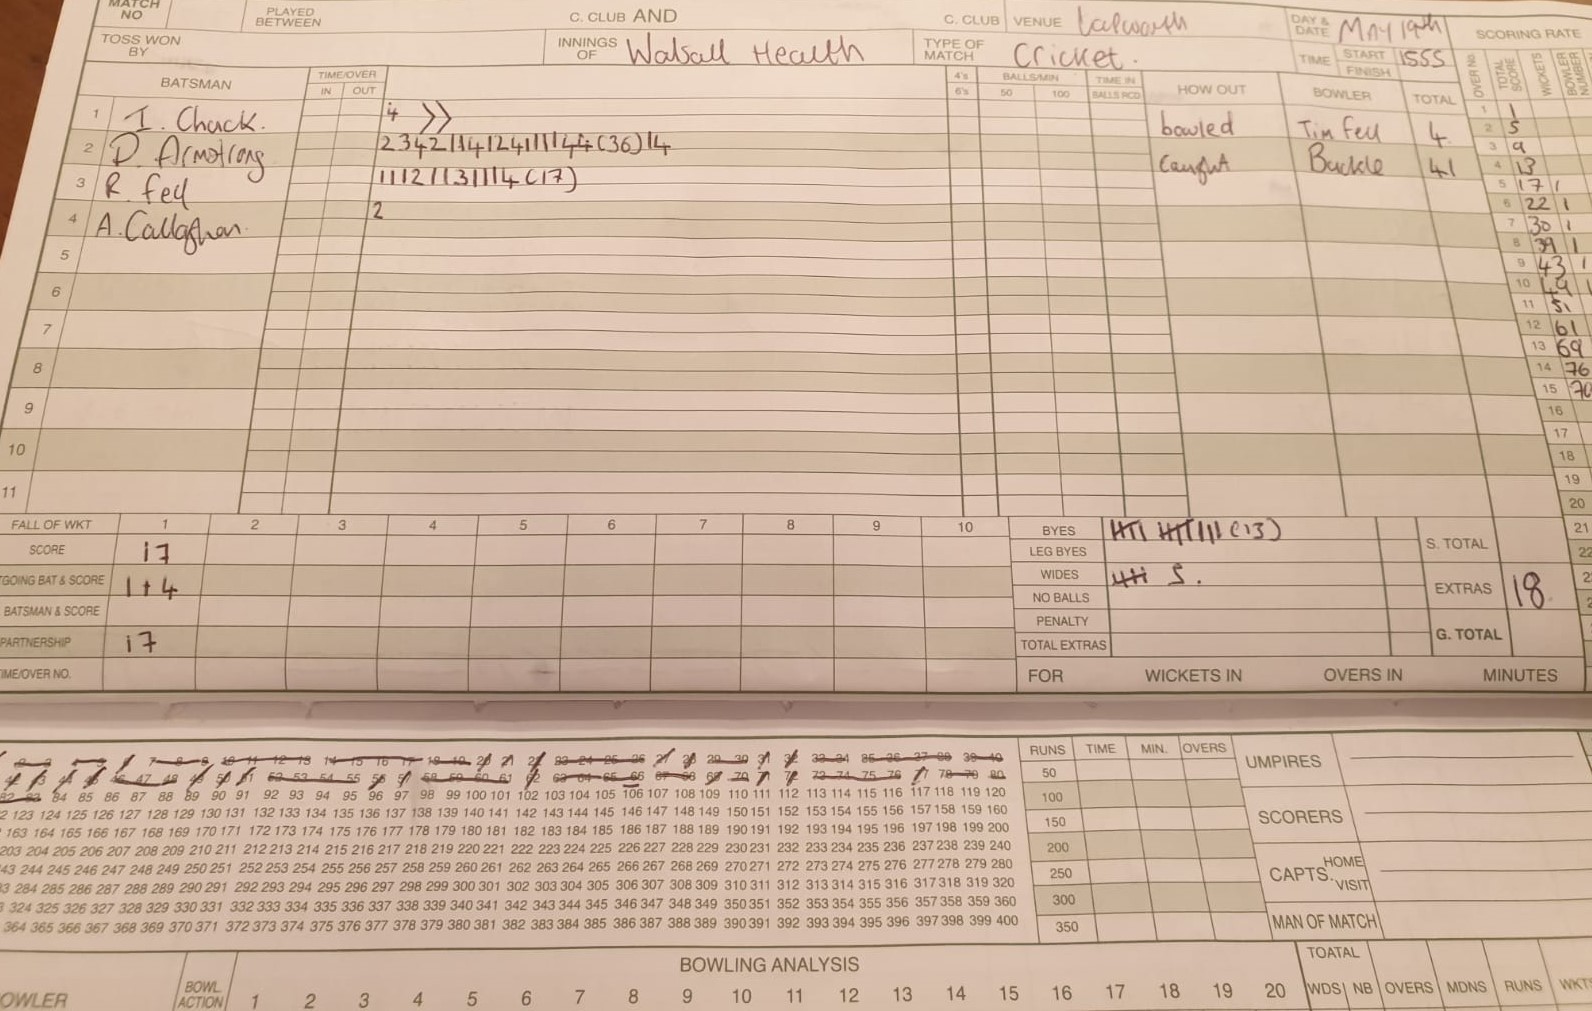 MATCH NO PLAYED BETWEEN C. CLUB AND C. CLUB VENUE DAY & DATE MAY 19th SCORING RATE
TOSS WON BY INNINGS OF Walsall Health TYPE OF MATCH Cricket. TIME START 1555 FINISH
BATSMAN TIME/OVER IN OUT 4's 6's BALLS/MIN 50 100 TIME IN BALLS RCD HOW OUT BOWLER TOTAL OVER No. TOTAL SCORE WICKETS BOWLER NUMBER
1 I. Chuck. 4 >> bowled Tim Fell 4
2 D. Armstrong (36)14 caught Buckle 41
3 R. Fell 11121131114(17)
4 A. Callaghan. 2
5
6
7
8
9
10
11
1 1
2 5
3 9
4 13
5 17 1
6 22 1
7 30 1
8 39 1
9 43 1
10 49 1
11 51
12 61
13 69
14 76
15
16
17
18
19
20
21
22
FALL OF WKT 1 2 3 4 5 6 7 8 9 10
SCORE 17
GOING BAT & SCORE 1 + 4
BATSMAN & SCORE
PARTNERSHIP 17
TIME/OVER NO.
BYES (13)
LEG BYES
WIDES 5.
NO BALLS
PENALTY
TOTAL EXTRAS
S. TOTAL
EXTRAS 18
G. TOTAL
FOR WICKETS IN OVERS IN MINUTES
84 85 86 87 88 89 90 91 92 93 94 95 96 97 98 99 100 101 102 103 104 105 106 107 108 109 110 111 112 113 114 115 116 117 118 119 120
123 124 125 126 127 128 129 130 131 132 133 134 135 136 137 138 139 140 141 142 143 144 145 146 147 148 149 150 151 152 153 154 155 156 157 158 159 160
163 164 165 166 167 168 169 170 171 172 173 174 175 176 177 178 179 180 181 182 183 184 185 186 187 188 189 190 191 192 193 194 195 196 197 198 199 200
203 204 205 206 207 208 209 210 211 212 213 214 215 216 217 218 219 220 221 222 223 224 225 226 227 228 229 230 231 232 233 234 235 236 237 238 239 240
43 244 245 246 247 248 249 250 251 252 253 254 255 256 257 258 259 260 261 262 263 264 265 266 267 268 269 270 271 272 273 274 275 276 277 278 279 280
3 284 285 286 287 288 289 290 291 292 293 294 295 296 297 298 299 300 301 302 303 304 305 306 307 308 309 310 311 312 313 314 315 316 317 318 319 320
324 325 326 327 328 329 330 331 332 333 334 335 336 337 338 339 340 341 342 343 344 345 346 347 348 349 350 351 352 353 354 355 356 357 358 359 360
364 365 366 367 368 369 370 371 372 373 374 375 376 377 378 379 380 381 382 383 384 385 386 387 388 389 390 391 392 393 394 395 396 397 398 399 400
RUNS TIME MIN. OVERS
50
100
150
200
250
300
350
UMPIRES
SCORERS
CAPTS. HOME VISIT
MAN OF MATCH
BOWLING ANALYSIS
OWLER BOWL. ACTION 1 2 3 4 5 6 7 8 9 10 11 12 13 14 15 16 17 18 19 20 TOATAL WDS NB OVERS MDNS RUNS WKTS